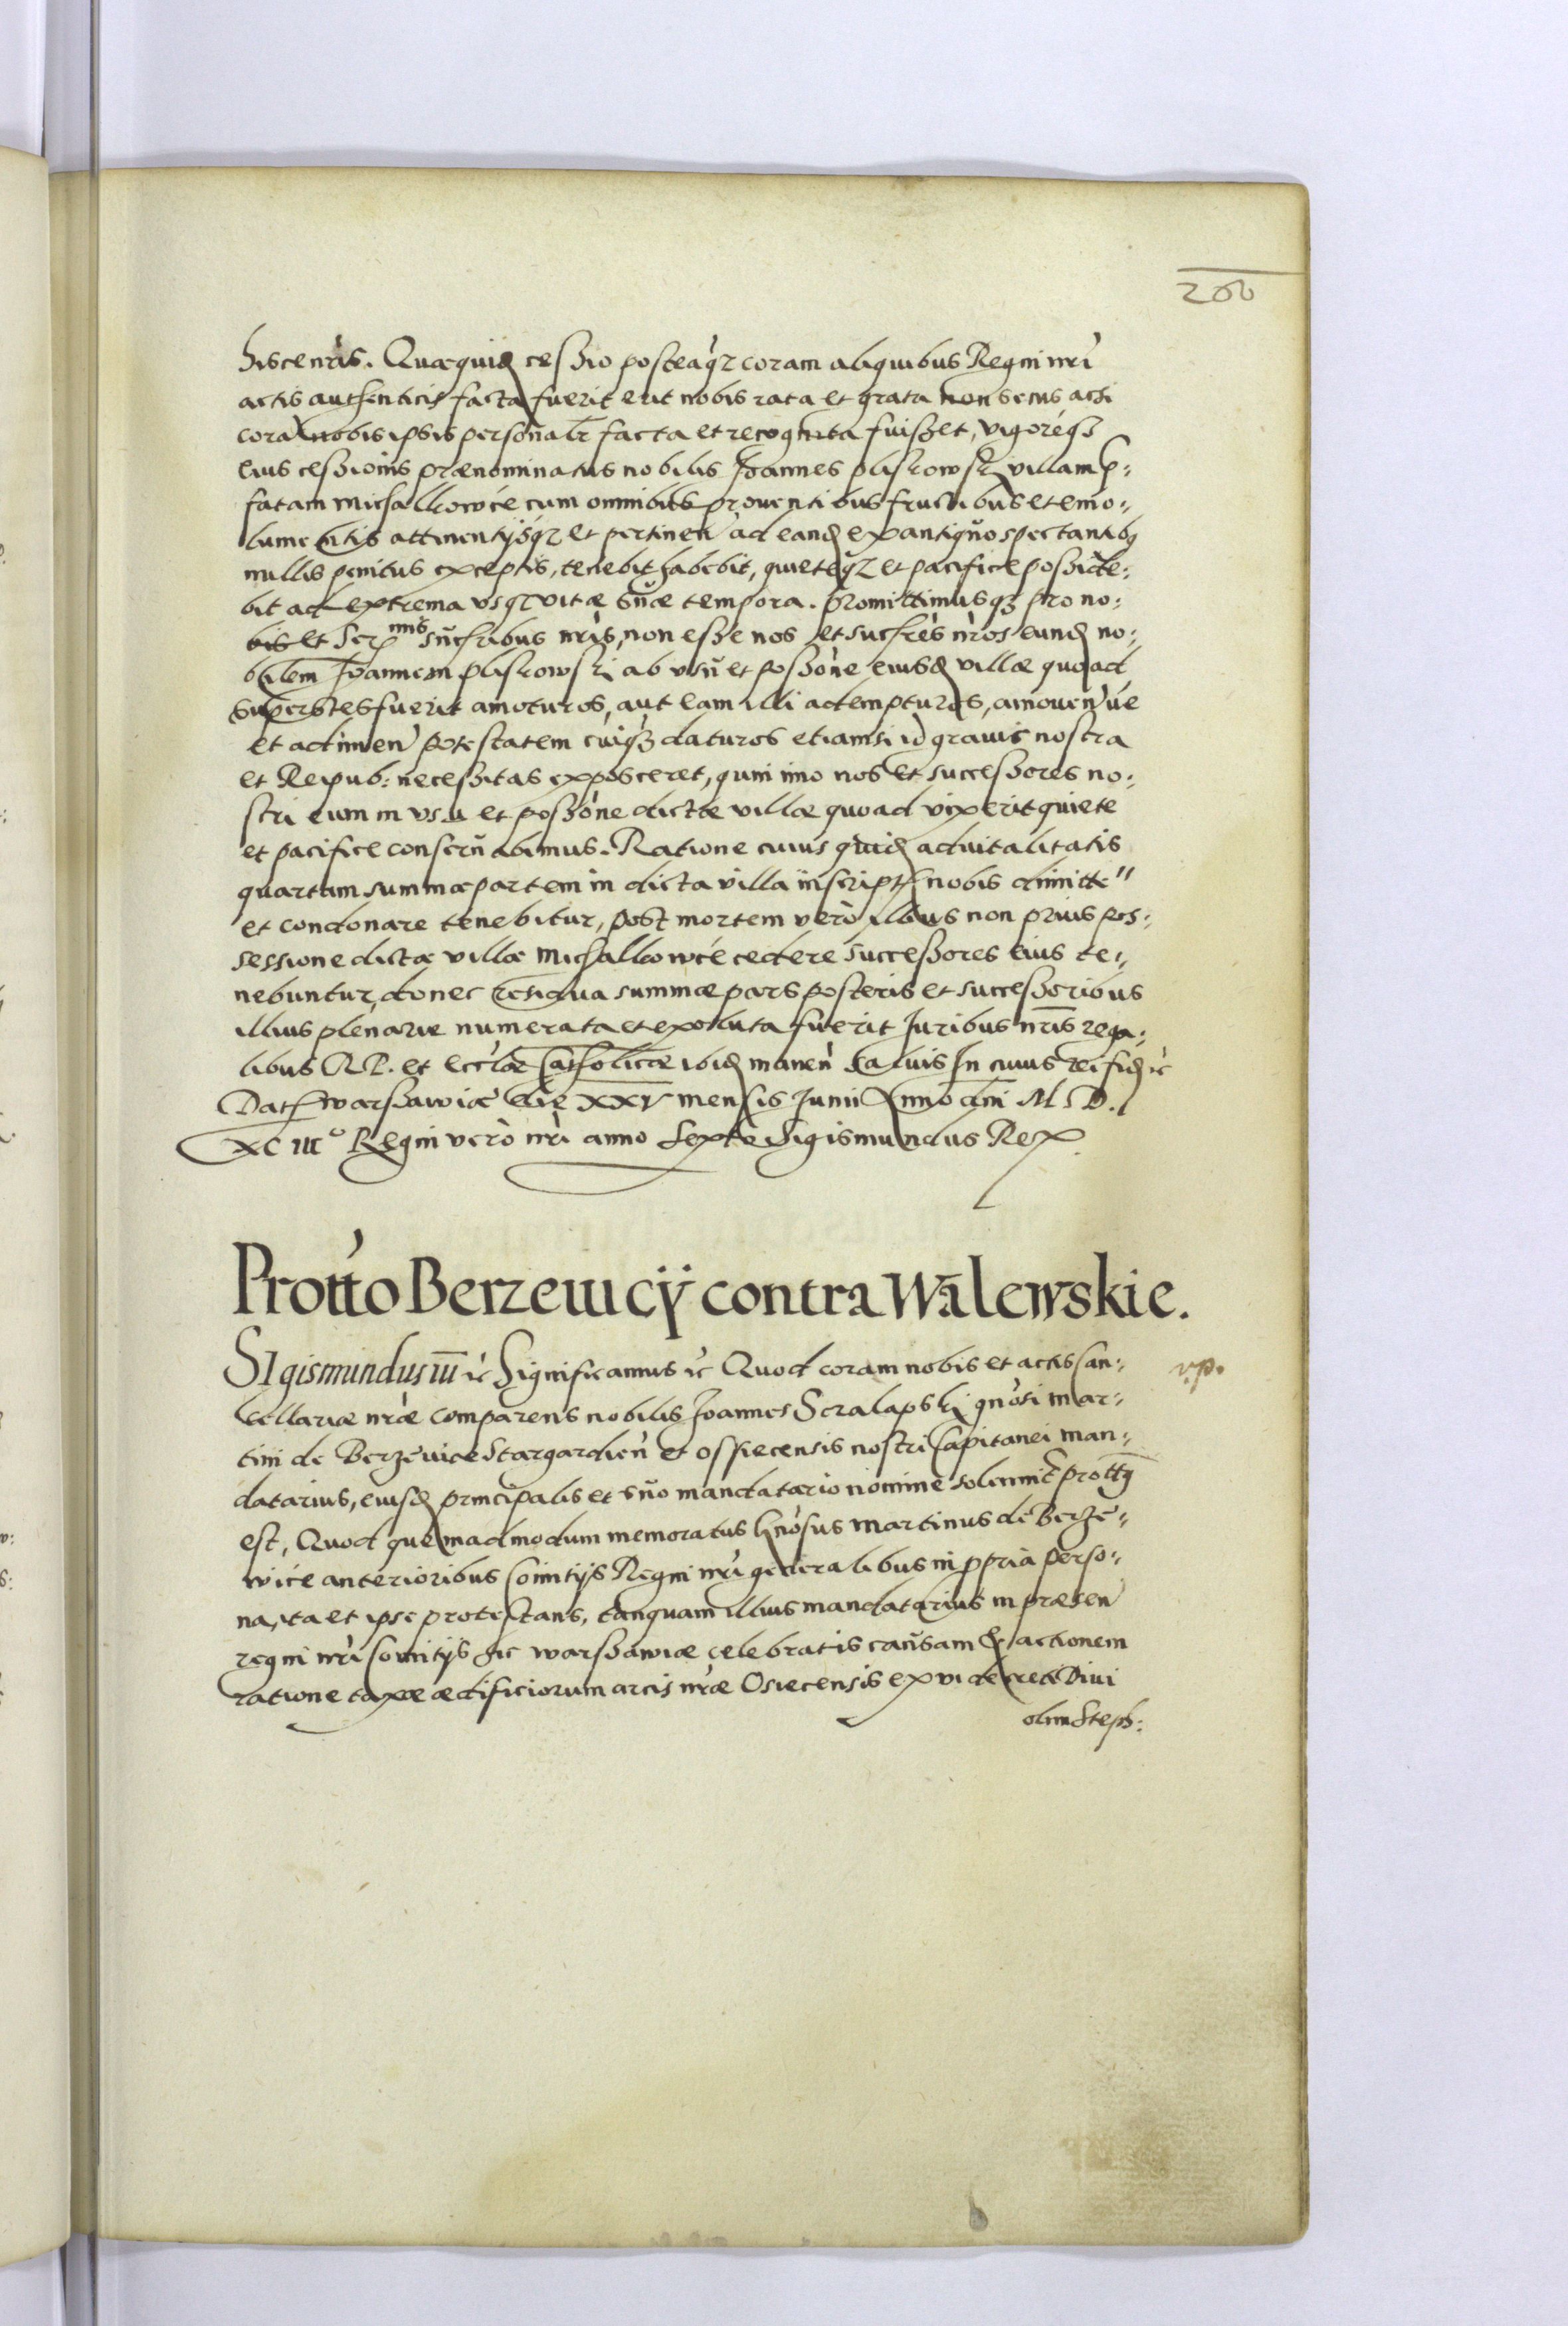 200
hisce nr̃is. Quæquid̃ ceßio posteaq̃z coram aliquibus Regni nr̃i
actis authenticis facta fuerit erit nobis rata et grata non secus ac si
corã nobis ipsis personalr̃ facta et recognita fuißet, vigoreqз
eius ceßionis prænominatus nobilis Joannes Pliskowski villam p̃:
fatam Michalkowice cum omnibus prouentibus fructibus et emo:
lumentis attinentijsqz et pertineñ ad eand̃ ex antiquo spectantibз
nullis penitus exceptis, tenebit habebit, quieteqz et pacifice poßide:
bit ad extrema vsqz vitæ suæ tempora. Promittimusqз pro no:
bis et Ser̃mis suc̃ribus nr̃is, non eße nos et suc̃res nr̃os eund̃ no:
bilem Joannem Pliskowski ab vsu et poßõne eiusd̃ villæ quoad
superstes fuerit amoturos, aut eam illi adempturos, amouen̾ ue
et adimen̾ potestatem cuiqз daturos etiamsi id grauis nostra
et Reipub: neceßitas exposceret, quin imo nos et succeßores no:
stri eum in vsu et poßõne dictæ villæ quoad vixerit quiete
et pacifice conseruabimus. Ratione cuius quid̃ aduitalitatis
quartam summæ partem in dicta villa inscript̃ nobis dimitte"
et condonare tenebitur, post mortem verò illius non prius pos:
sessione dictæ villæ Michalkowice cedere succeßores eius te:
nebuntur, donec reliqua summæ pars posteris et succeßoribus
illius plenarie numerata et exoluta fuerit Juribus nr̃is rega:
libus RP. et Eccl̃æ Catholicæ ibid̃ manen̾ saluis In cuius rei fid̃ ic̃
Dat̃ Warßawiæ die XXV mensis Junii Anno dñi M. D.
XC IIIº Regni verò nr̃i anno Sexto Sigismundus Rex.
Prott̾o Berzeuicÿ contra Walewskie.
SIgismundus iii̅ ic̃ Significamus ic̃ Quod coram nobis et actis Can:
v.p.
cellariæ nr̃æ comparens nobilis Joannes Scralapski gnõsi Mar:
tini de Berzeuice Stargardien̾ et Ossiecensis nostri Capitanei man:
datarius, eiusd̃ principalis et suo mandatario nomine solennit̃ prott̃з
est, Quod quemadmodum memoratus Gnõsus Martinus de Berze:
wice anterioribus Comitijs Regni nr̃i generalibus in p̱pria perso:
na, ita et ipse protestans, tanquam illius mandatarius in præsen̾
regni nr̃i Comitijs hic Warßawiæ celebratis causam & actionem
ratione taxæ ædificiorum arcis nr̃æ Osiecensis ex vi decreti Diui
olim Steph: